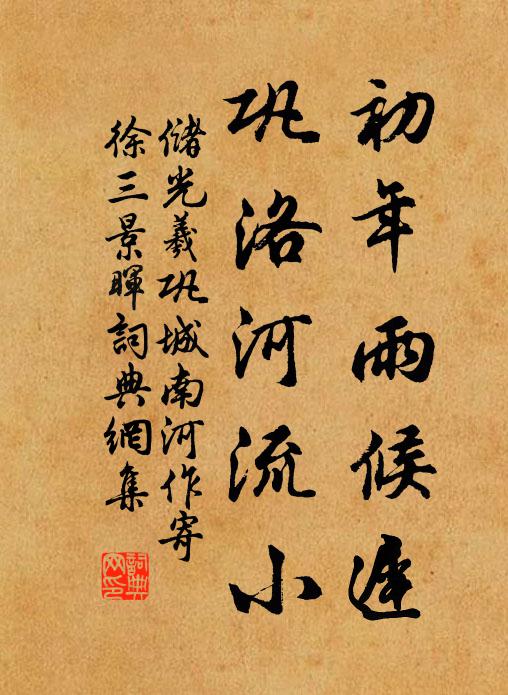 初年雨候遲
巩洛河流小
儲光羲巩城南河作寄
徐三景暉詞典網集
詞典网印